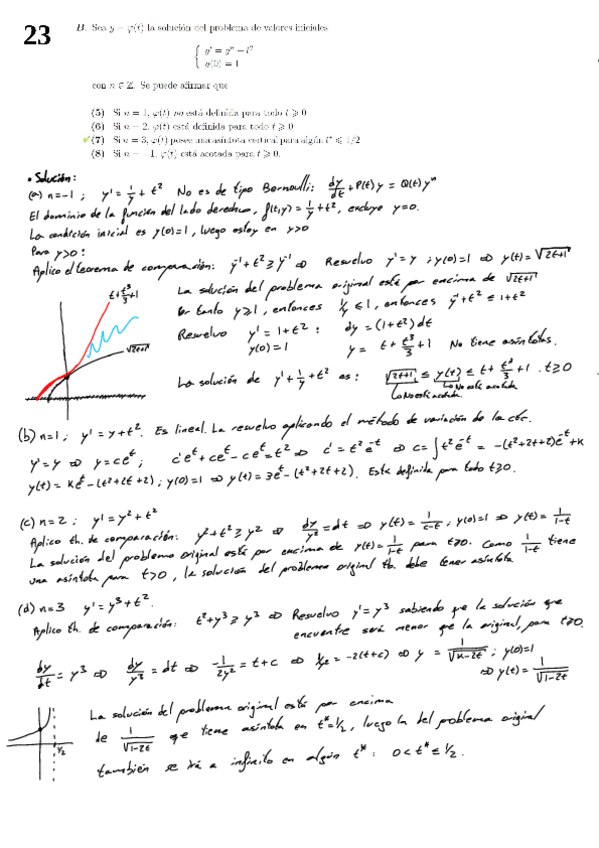 23
B. Sea y = φ(t) la solución del problema de valores iniciales
{ y' = yⁿ − t²
y(0) = 1
con n ∈ Z. Se puede afirmar que
(5) Si n = 1, φ(t) no está definida para todo t ⩾ 0
(6) Si n = 2, φ(t) está definida para todo t ⩾ 0
(7) Si n = 3, φ(t) posee una asíntota vertical para algún t* ⩽ 1/2
(8) Si n = −1, φ(t) está acotada para t ⩾ 0.
• Solución:
(a) n=-1 ; y' = 1/y + t² No es de tipo Bernoulli: dy/dt + P(t)y = Q(t)yⁿ
El dominio de la función del lado derecho, f(t,y) = 1/y + t², excluye y=0.
La condición inicial es y(0)=1, luego estoy en y>0
Para y>0:
Aplico el teorema de comparación: y⁻¹+t² ≥ y⁻¹ ⇒ Resuelvo y'=y⁻¹ ; y(0)=1 ⇒ y(t)=√2t+1
La solución del problema original está por encima de √2t+1
Por tanto y≥1, entonces 1/y ≤ 1, entonces y⁻¹+t² ≤ 1+t²
Resuelvo y' = 1+t² : dy = (1+t²)dt
y(0)=1 y = t + t³/3 + 1 No tiene asíntotas.
t + t³/3 + 1
√2t+1
La solución de y' = 1/y + t² es: √2t+1 ≤ y(t) ≤ t + t³/3 + 1 . t≥0
No está acotada. No está acotada
(b) n=1 ; y' = y+t². Es lineal. La resuelvo aplicando el método de variación de la cte.
y'=y ⇒ y=ceᵗ ; c'eᵗ+ceᵗ-ceᵗ=t² ⇒ c'=t²e⁻ᵗ ⇒ c=∫t²e⁻ᵗ = -(t²+2t+2)e⁻ᵗ+K
y(t) = Keᵗ-(t²+2t+2) ; y(0)=1 ⇒ y(t)=3eᵗ-(t²+2t+2). Está definida para todo t≥0.
(c) n=2 ; y'=y²+t²
Aplico th. de comparación: y²+t² ≥ y² ⇒ dy/y² = dt ⇒ y(t) = 1/c-t ; y(0)=1 ⇒ y(t) = 1/1-t
La solución del problema original está por encima de y(t)=1/1-t para t≥0. Como 1/1-t tiene
una asíntota para t>0, la solución del problema original tb. debe tener asíntota
(d) n=3 y'=y³+t².
Aplico th. de comparación: t²+y³ ≥ y³ ⇒ Resuelvo y'=y³ sabiendo que la solución que
encuentre será menor que la original, para t≥0.
dy/dt = y³ ⇒ dy/y³ = dt ⇒ -1/2y² = t+c ⇒ 1/y² = -2(t+c) ⇒ y = 1/√K-2t ; y(0)=1
⇒ y(t) = 1/√1-2t
La solución del problema original está por encima
de 1/√1-2t que tiene asíntota en t*=1/2, luego la del problema original
también se irá a infinito en algún t* : 0<t*≤1/2.
1/2